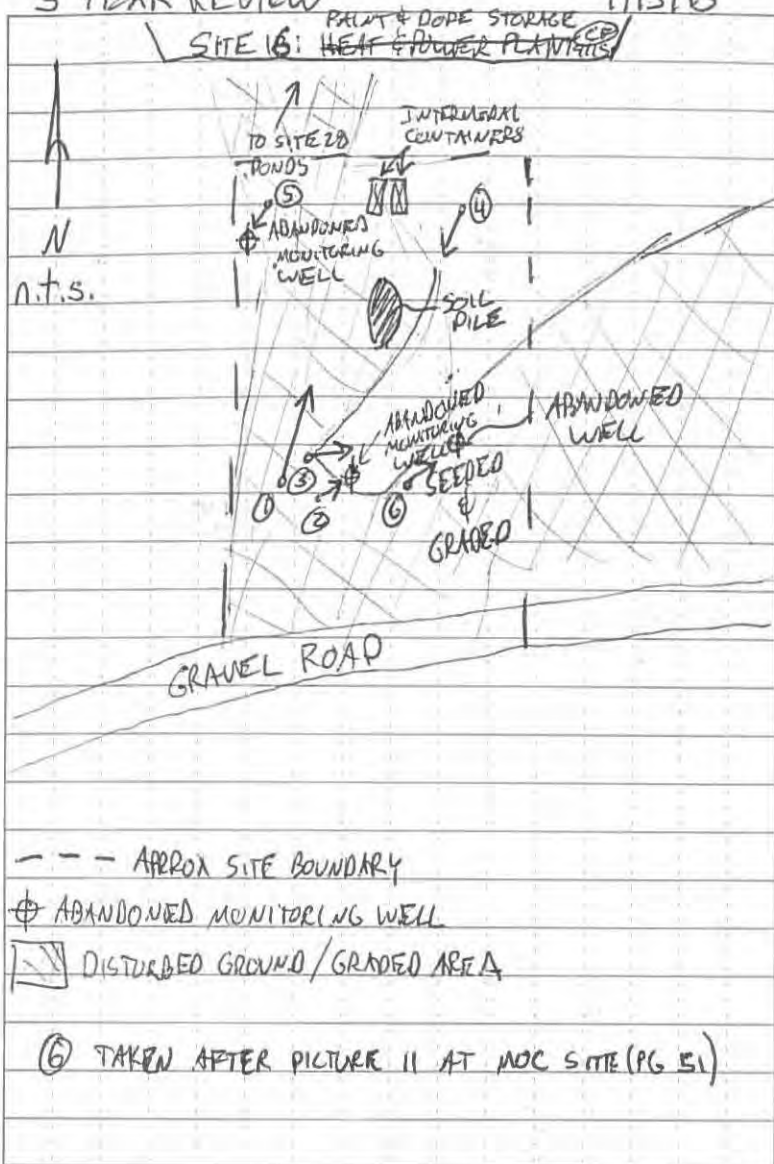 5 YEAR REVIEW
PAINT & DOPE STORAGE
SITE 16: HEAT & POWER PLANT
TO SITE 28
PONDS
INTERMODAL
CONTAINERS
5
4
ABANDONED
MONITORING
WELL
N
n.t.s.
SOIL
PILE
ABANDONED
MONITORING
WELL
ABANDONED
WELL
1
3
2
6
SEEDED
&
GRADED
GRAVEL ROAD
--- APPROX SITE BOUNDARY
ABANDONED MONITORING WELL
DISTURBED GROUND/GRADED AREA
6 TAKEN AFTER PICTURE 11 AT MOC SITE (PG 51)